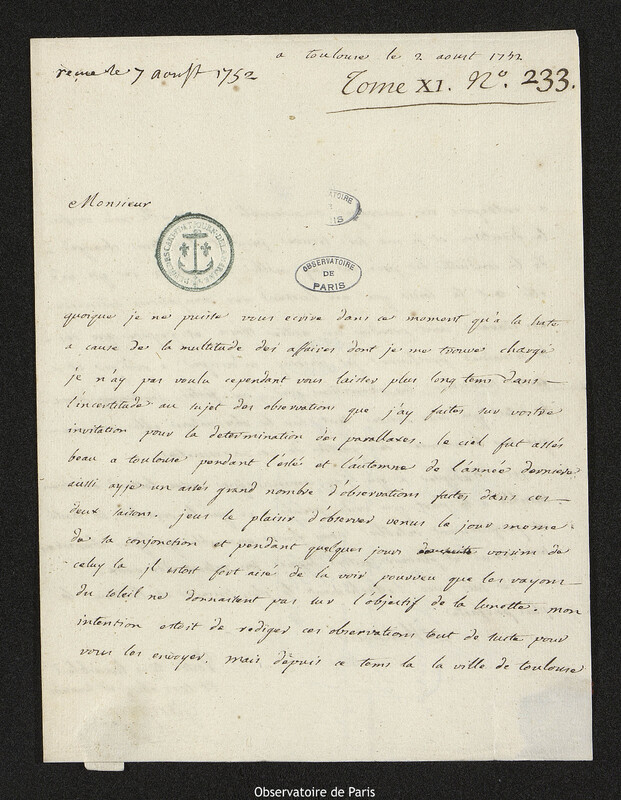 a toulouse le 2 aoust 1752
reçue le 7 aoust 1752
Tome XI. N.º 233.
Monsieur
OBSERVATOIRE
DE
PARIS
quoique je ne puisse vous ecrire dans ce moment qu'a la hate
a cause de la multitude des affaires dont je me trouve chargé
je n'ay pas voulu cependant vous laisser plus long tems dans
l'incertitude au sujet des observations que j'ay faites sur vostre
invitation pour la determination des parallaxes. le ciel fut assés
beau a toulouse pendant l'esté et l'automne de l'année derniere
aussi ay je un assés grand nombre d'observations faites dans ces
deux saisons. jeus le plaisir d'observer venus le jour meme
de sa conjonction et pendant quelques jours voisins de
celuy la il estoit fort aisé de la voir pourveu que les rayons
du soleil ne donnassent pas sur l'objectif de la lunette. mon
intention estoit de rediger ces observations tout de suite pour
vous les envoyer. mais dépuis ce tems la la ville de toulouse
Observatoire de Paris